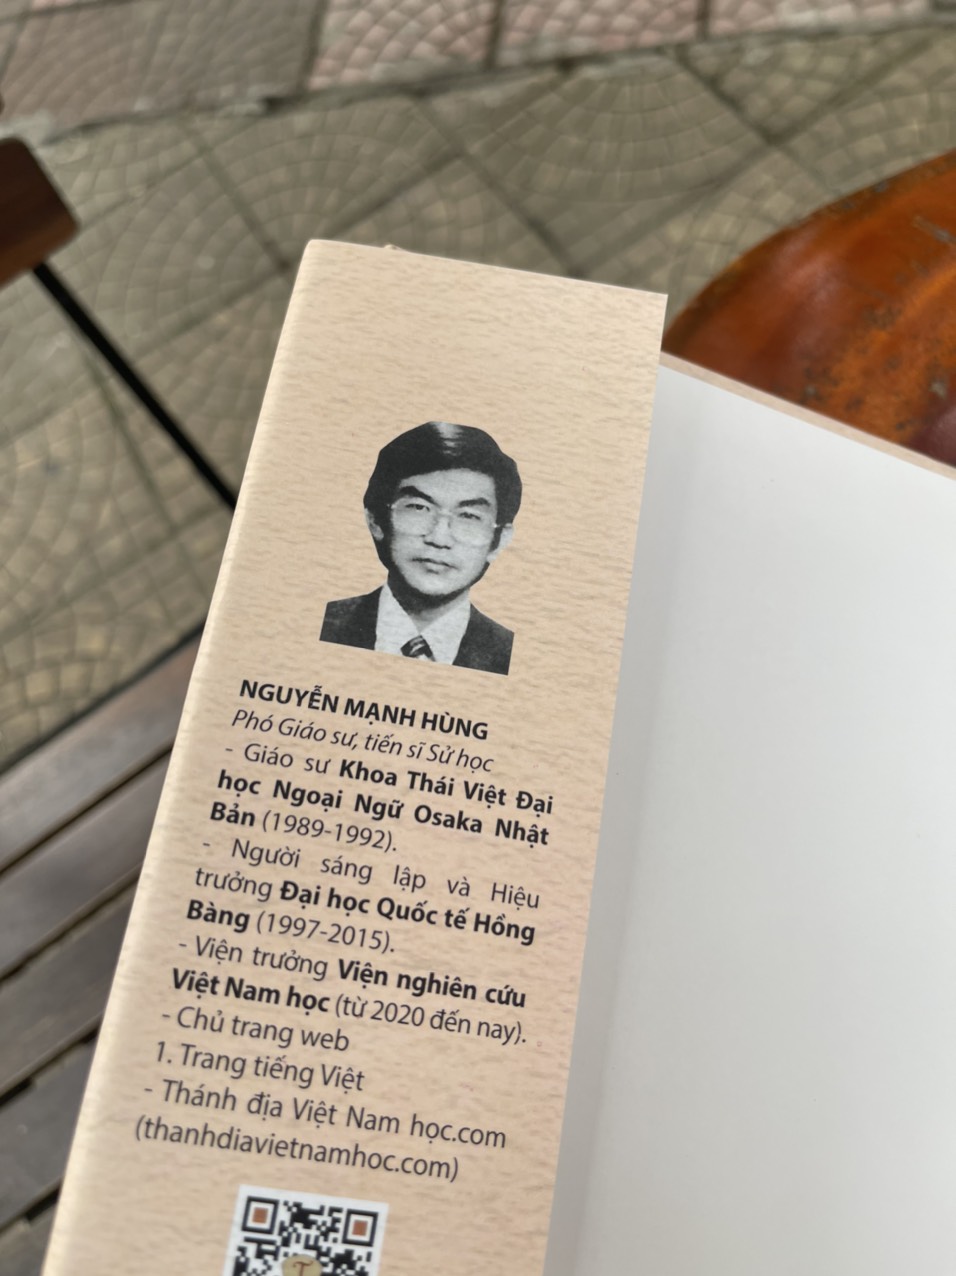 NGUYỄN MẠNH HÙNG
Phó Giáo sư, tiến sĩ Sử học
- Giáo sư Khoa Thái Việt Đại
học Ngoại Ngữ Osaka Nhật
Bản (1989-1992).
- Người sáng lập và Hiệu
trưởng Đại học Quốc tế Hồng
Bàng (1997-2015).
- Viện trưởng Viện nghiên cứu
Việt Nam học (từ 2020 đến nay).
- Chủ trang web
1. Trang tiếng Việt
- Thánh địa Việt Nam học.com
(thanhdiavietnamhoc.com)
T